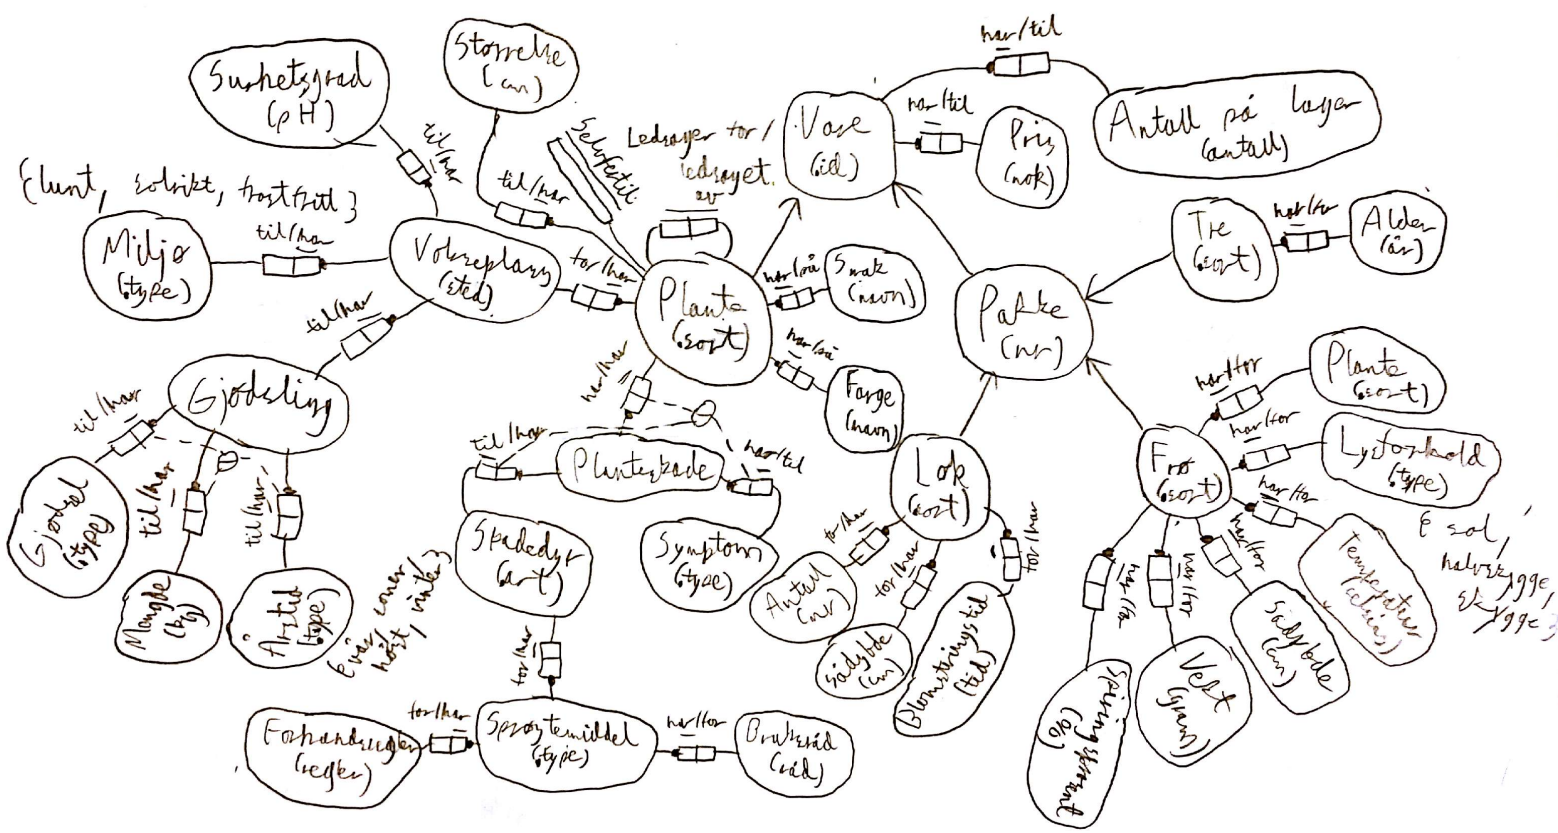 Surhetsgrad
(pH)
til/har
Størrelse
(cm)
til/har
Selvfertil
Ledsager for/
ledsaget
av
Vare
(.id)
har/til
har/til
Pris
(nok)
Antall på lager
(antall)
{lunt, solrikt, frostfritt}
Miljø
(.type)
til/har
Vokseplass
(sted)
for/har
Plante
(.sort)
har/på
Smak
(navn)
har/på
Farge
(navn)
Pakke
(nr)
Tre
(.sort)
har/for
Alder
(år)
til/har
Gjødsling
til/har
Gjødsel
(.type)
til/har
Mengde
(kg)
til/har
Årstid
(.type)
{vår, sommer,
høst, vinter}
har/har
Planteskade
til/har
Skadedyr
(.art)
har/til
Symptom
(.type)
for/har
Sprøytemiddel
(.type)
for/har
Forhandsregler
(regler)
har/for
Bruksråd
(råd)
Løk
(.sort)
for/har
Antall
(nr)
for/har
sådybde
(cm)
for/har
Blomstringstid
(tid)
Frø
(.sort)
har/for
Plante
(.sort)
har/for
Lysforhold
(.type)
{sol,
halvskygge,
skygge}
har/for
Temperatur
(celsius)
har/for
sådybde
(cm)
har/for
Vekt
(gram)
har/for
Spiringsprosent
(%)